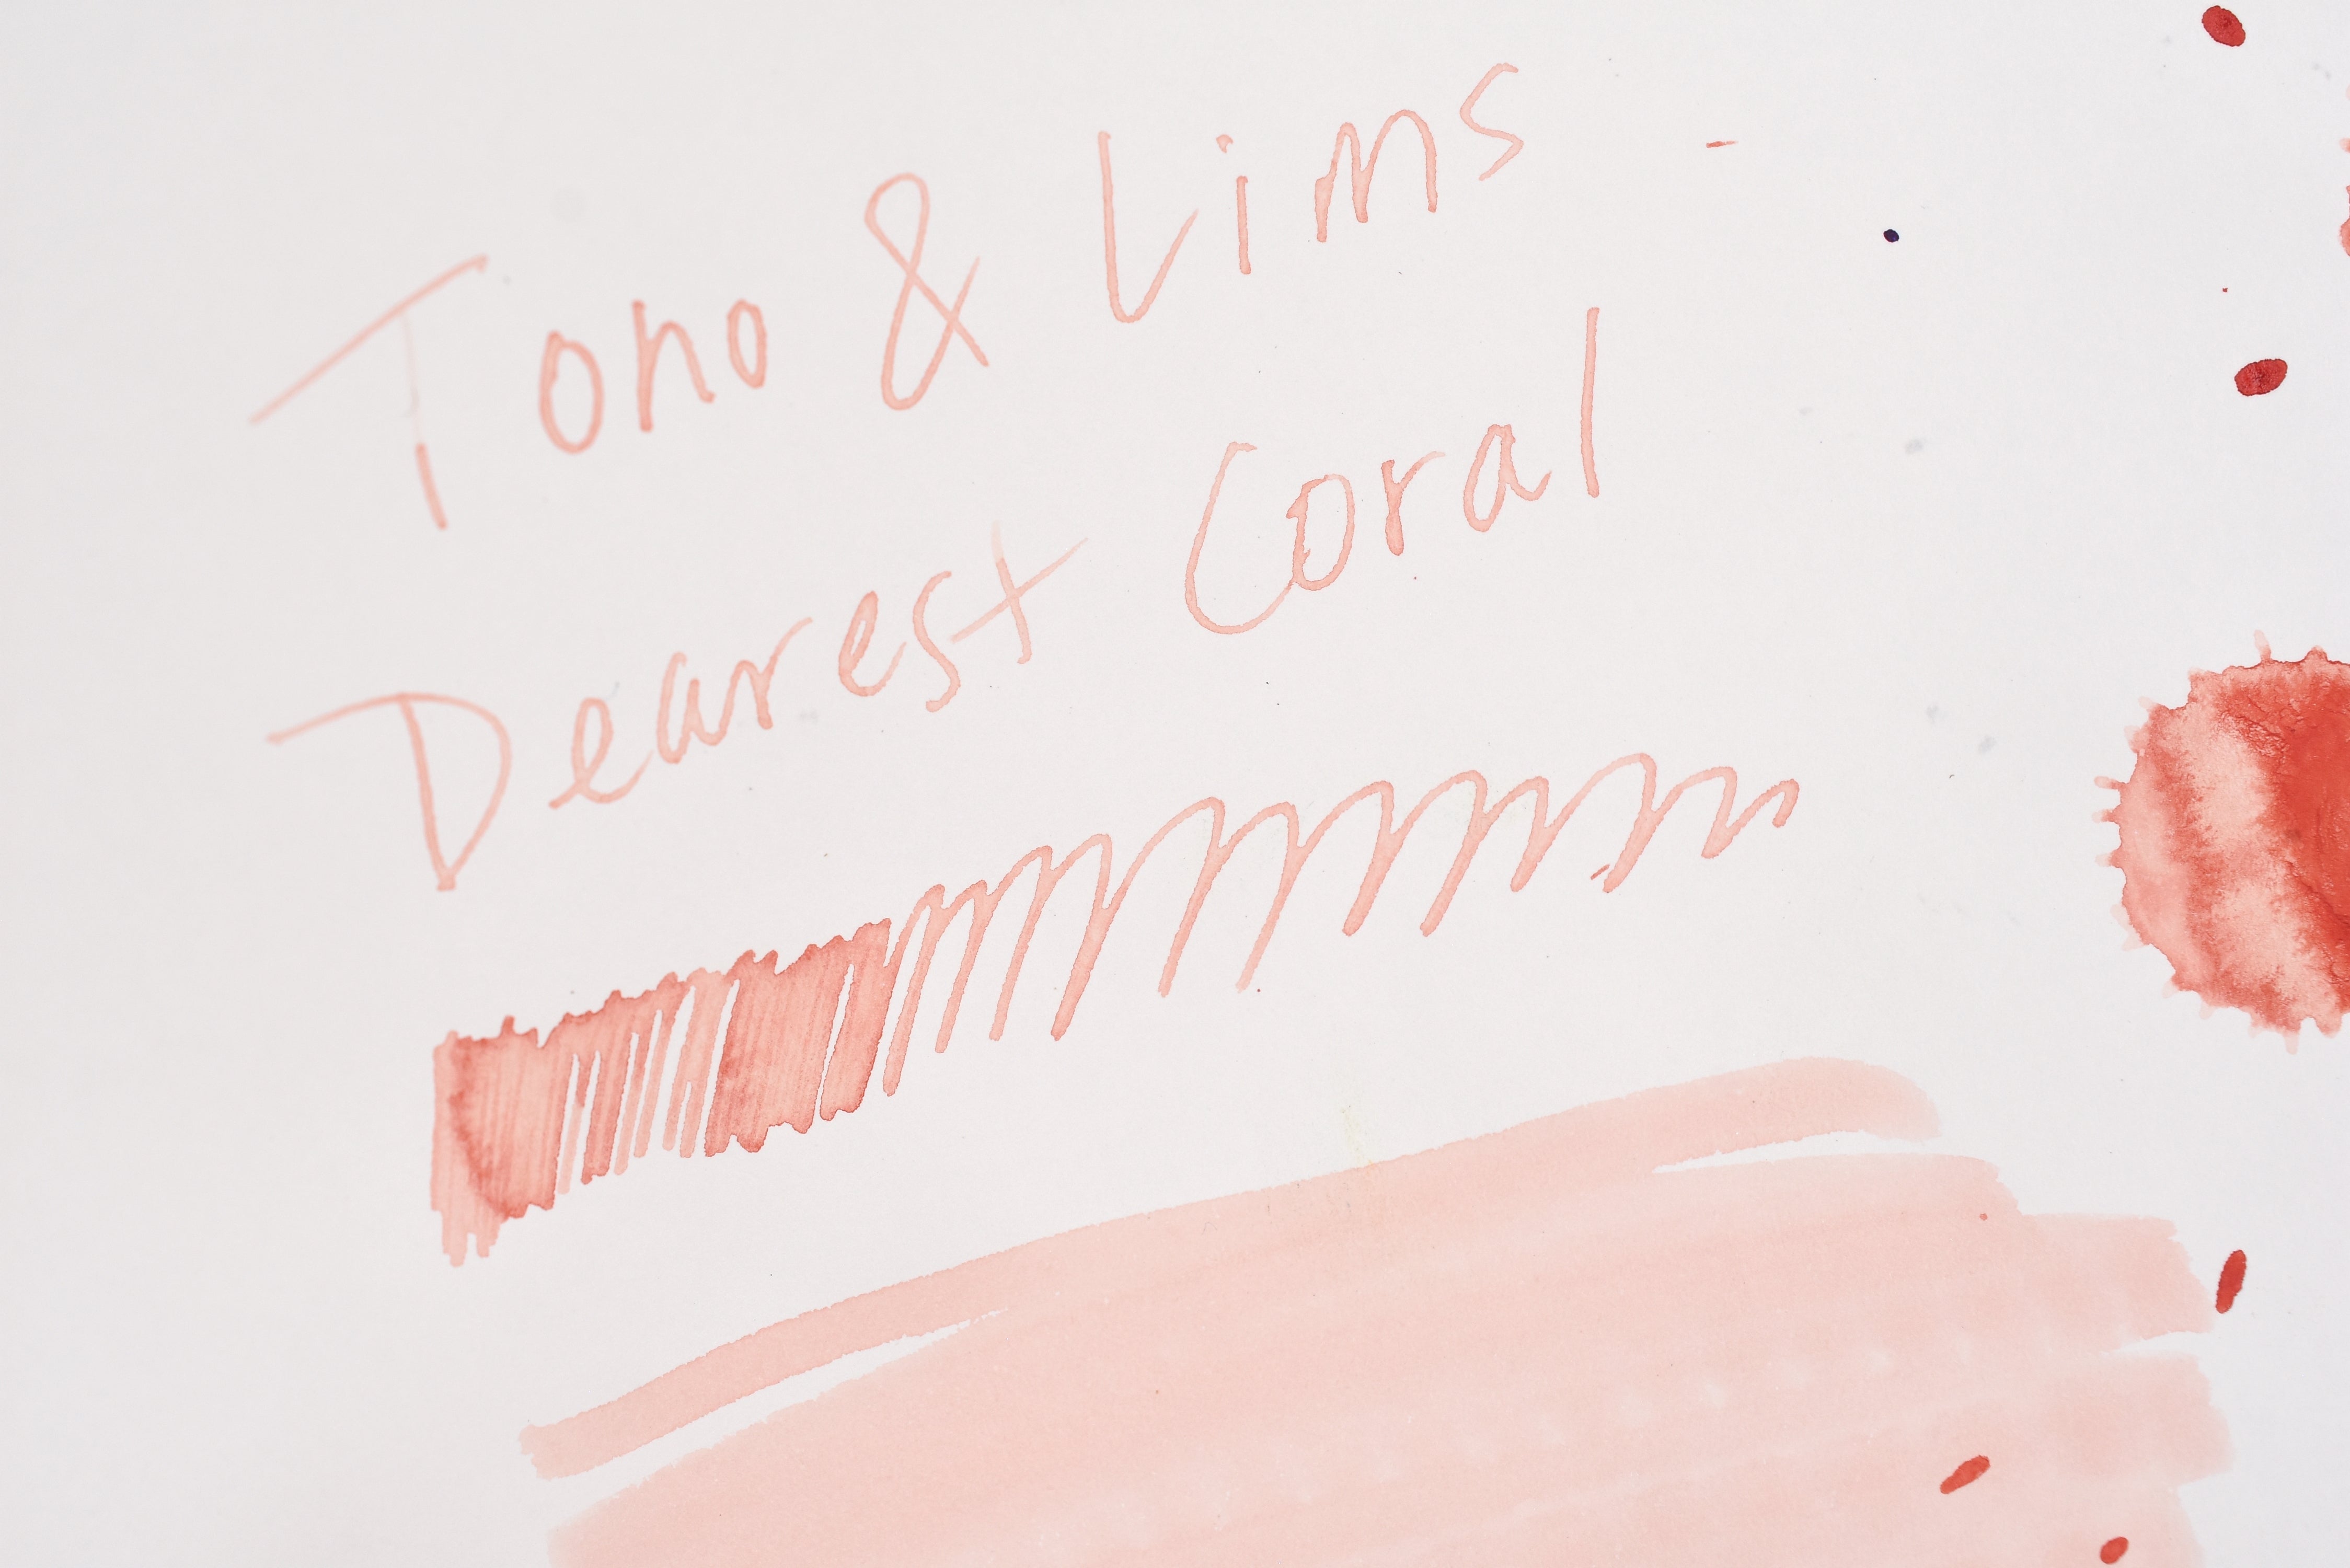 Tono & Lims
Dearest Coral